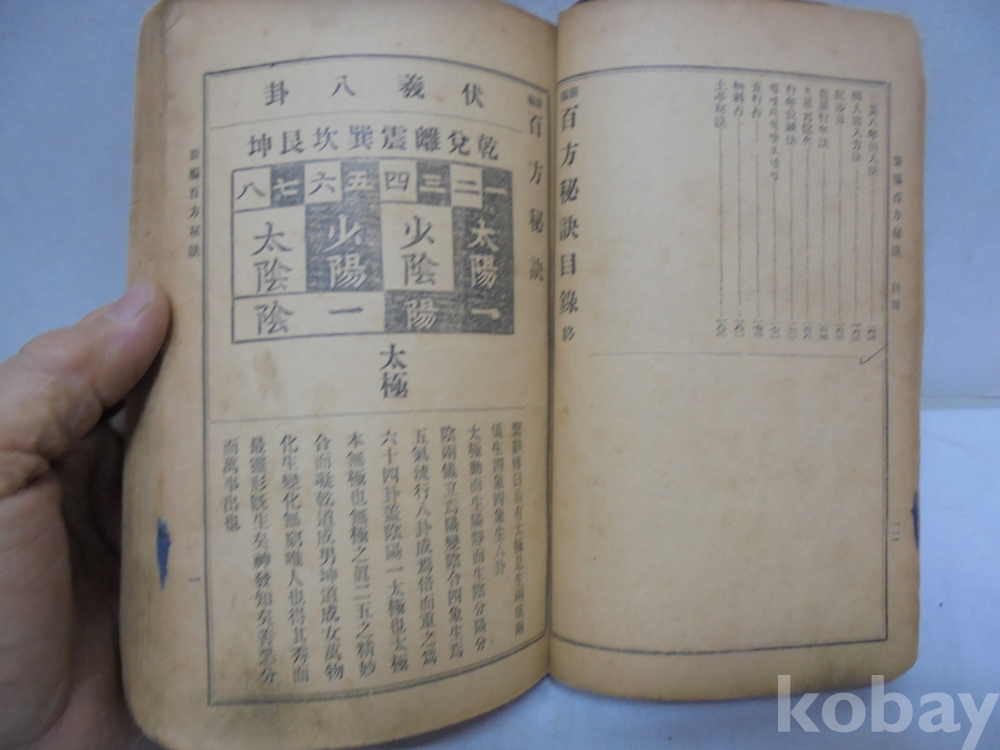 新編百方秘訣 目錄
二
起沙日
五行占
土亭秘訣
新編 百方秘訣目錄 終
新編 百方秘訣
伏羲八卦
乾兌離震巽坎艮坤
一二三四五六七八
太陽 少陰 少陽 太陰
一 陽 一 陰
太極
繫辭傳曰易有太極是生兩儀兩
儀生四象四象生八卦
太極動而生陽靜而生陰分陽分
陰兩儀立焉陽變陰合四象生焉
五氣流行八卦成焉倍而重之爲
六十四卦
本無極也無極之眞二五之精妙
合而凝乾道成男坤道成女萬物
化生變化無窮唯人也得其秀而
最靈形旣生矣神發知矣善惡分
而萬事出也
新編百方秘訣
一
kobay